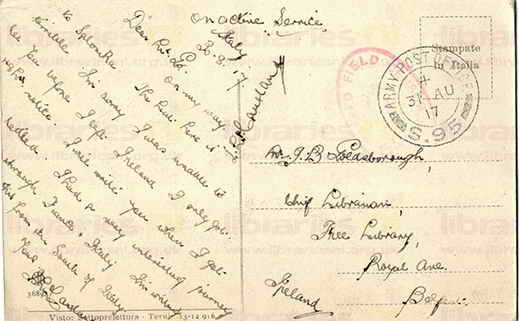 On Active Service
Italy
30.8.17
Dear Mr G.
On my way
to Salonika. The heat here is
terrible. I'm sorry I was unable to
see you before I left Ireland I only got
notice I will write you when I get
settled. I had a very interesting journey
through France & Italy. I'm writing
this from the South of Italy.
Stampate
in Italia
FIELD
ARMY POST OFFICE
31 AU
17
S.95
Mr. J. B. Goldsborough,
Chief Librarian,
Free Library,
Royal Ave.
Belfast
Ireland
Visto: Sottoprefettura - Terni 13-12 916
libraries